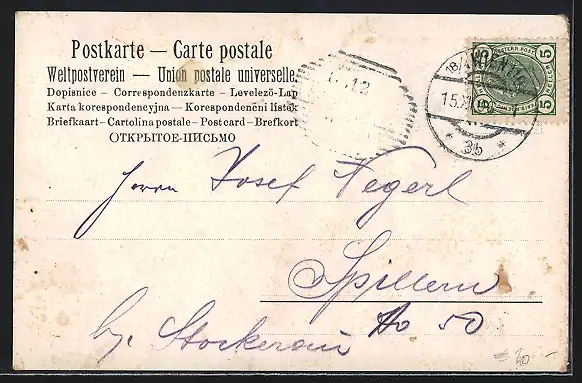 Postkarte — Carte postale
Weltpostverein — Union postale universelle.
Dopisnice – Correspondenzkarte – Levelező-Lap
Karta korespondencyjna – Korespondenční lístek
Briefkaart – Cartolina postale – Postcard – Brefkort
ОТКРЫТОЕ-ПИСЬМО
5 5
5 5
18/1 WIEN
15.X
* 3b *
Herrn Josef Negerl
Spillern
No 50
by. Stockerau